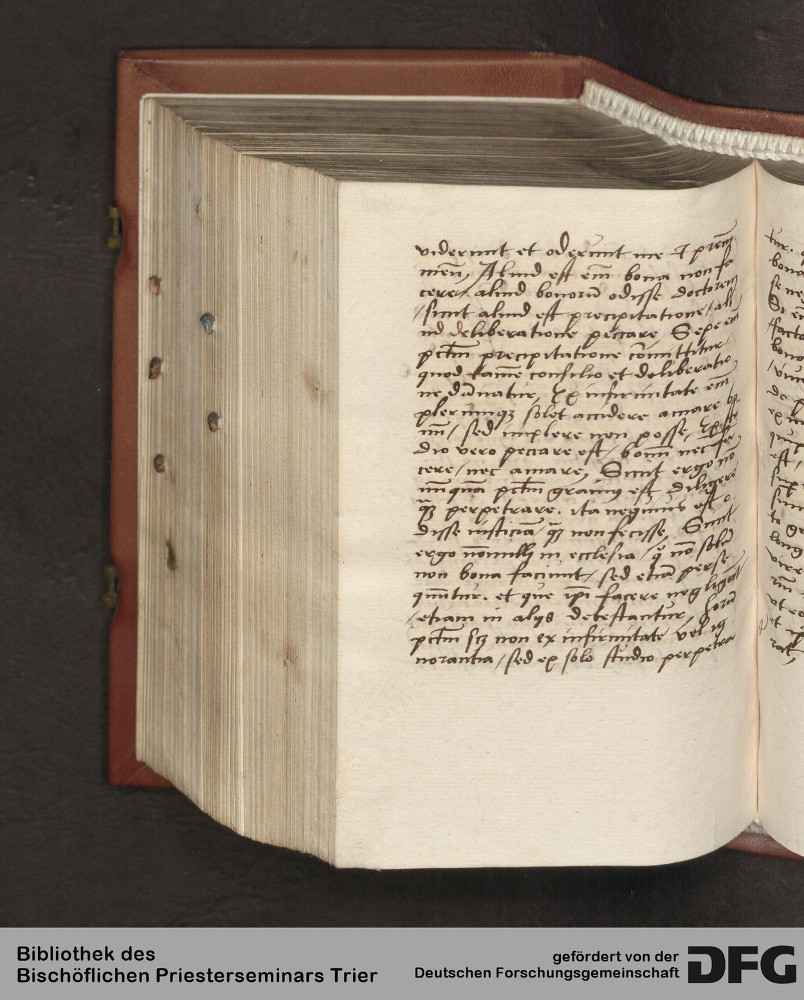 viderunt et oderunt me & prem
meu, Aliud est em bona non fa
cere/ aliud bonoru odisse doctorem
/sicut aliud est precipitatione/ ali
ud deliberatione peccare Sepe em
pctm precipitatione comittitur/
quod tame consilio et deliberatio
ne danatur, Ex infirmitate em
plerumqz solet accidere amare bo
nu/ sed implere non posse, Ex stu
dio vero peccare est/ bonu nec fa
cere/ nec amare, Sicut ergo no
nunqua pctm gravius est diligere
qz perpetrare. ita nequius est o
disse iusticia/ qz non fecisse, Sunt
ergo nonulli in ecclesia/ q no solu
non bona faciunt/ sed etia perse
quutur. et que ipi facere negligunt
/etiam in alijs detestantur, horu
pctm scz non ex infirmitate vel ig
norantia/ sed ex solo studio perpetra
tur.
bona
se ne
facto
bono
est/
vt eo
et
rat,
Bibliothek des
Bischöflichen Priesterseminars Trier
gefördert von der
Deutschen Forschungsgemeinschaft
DFG